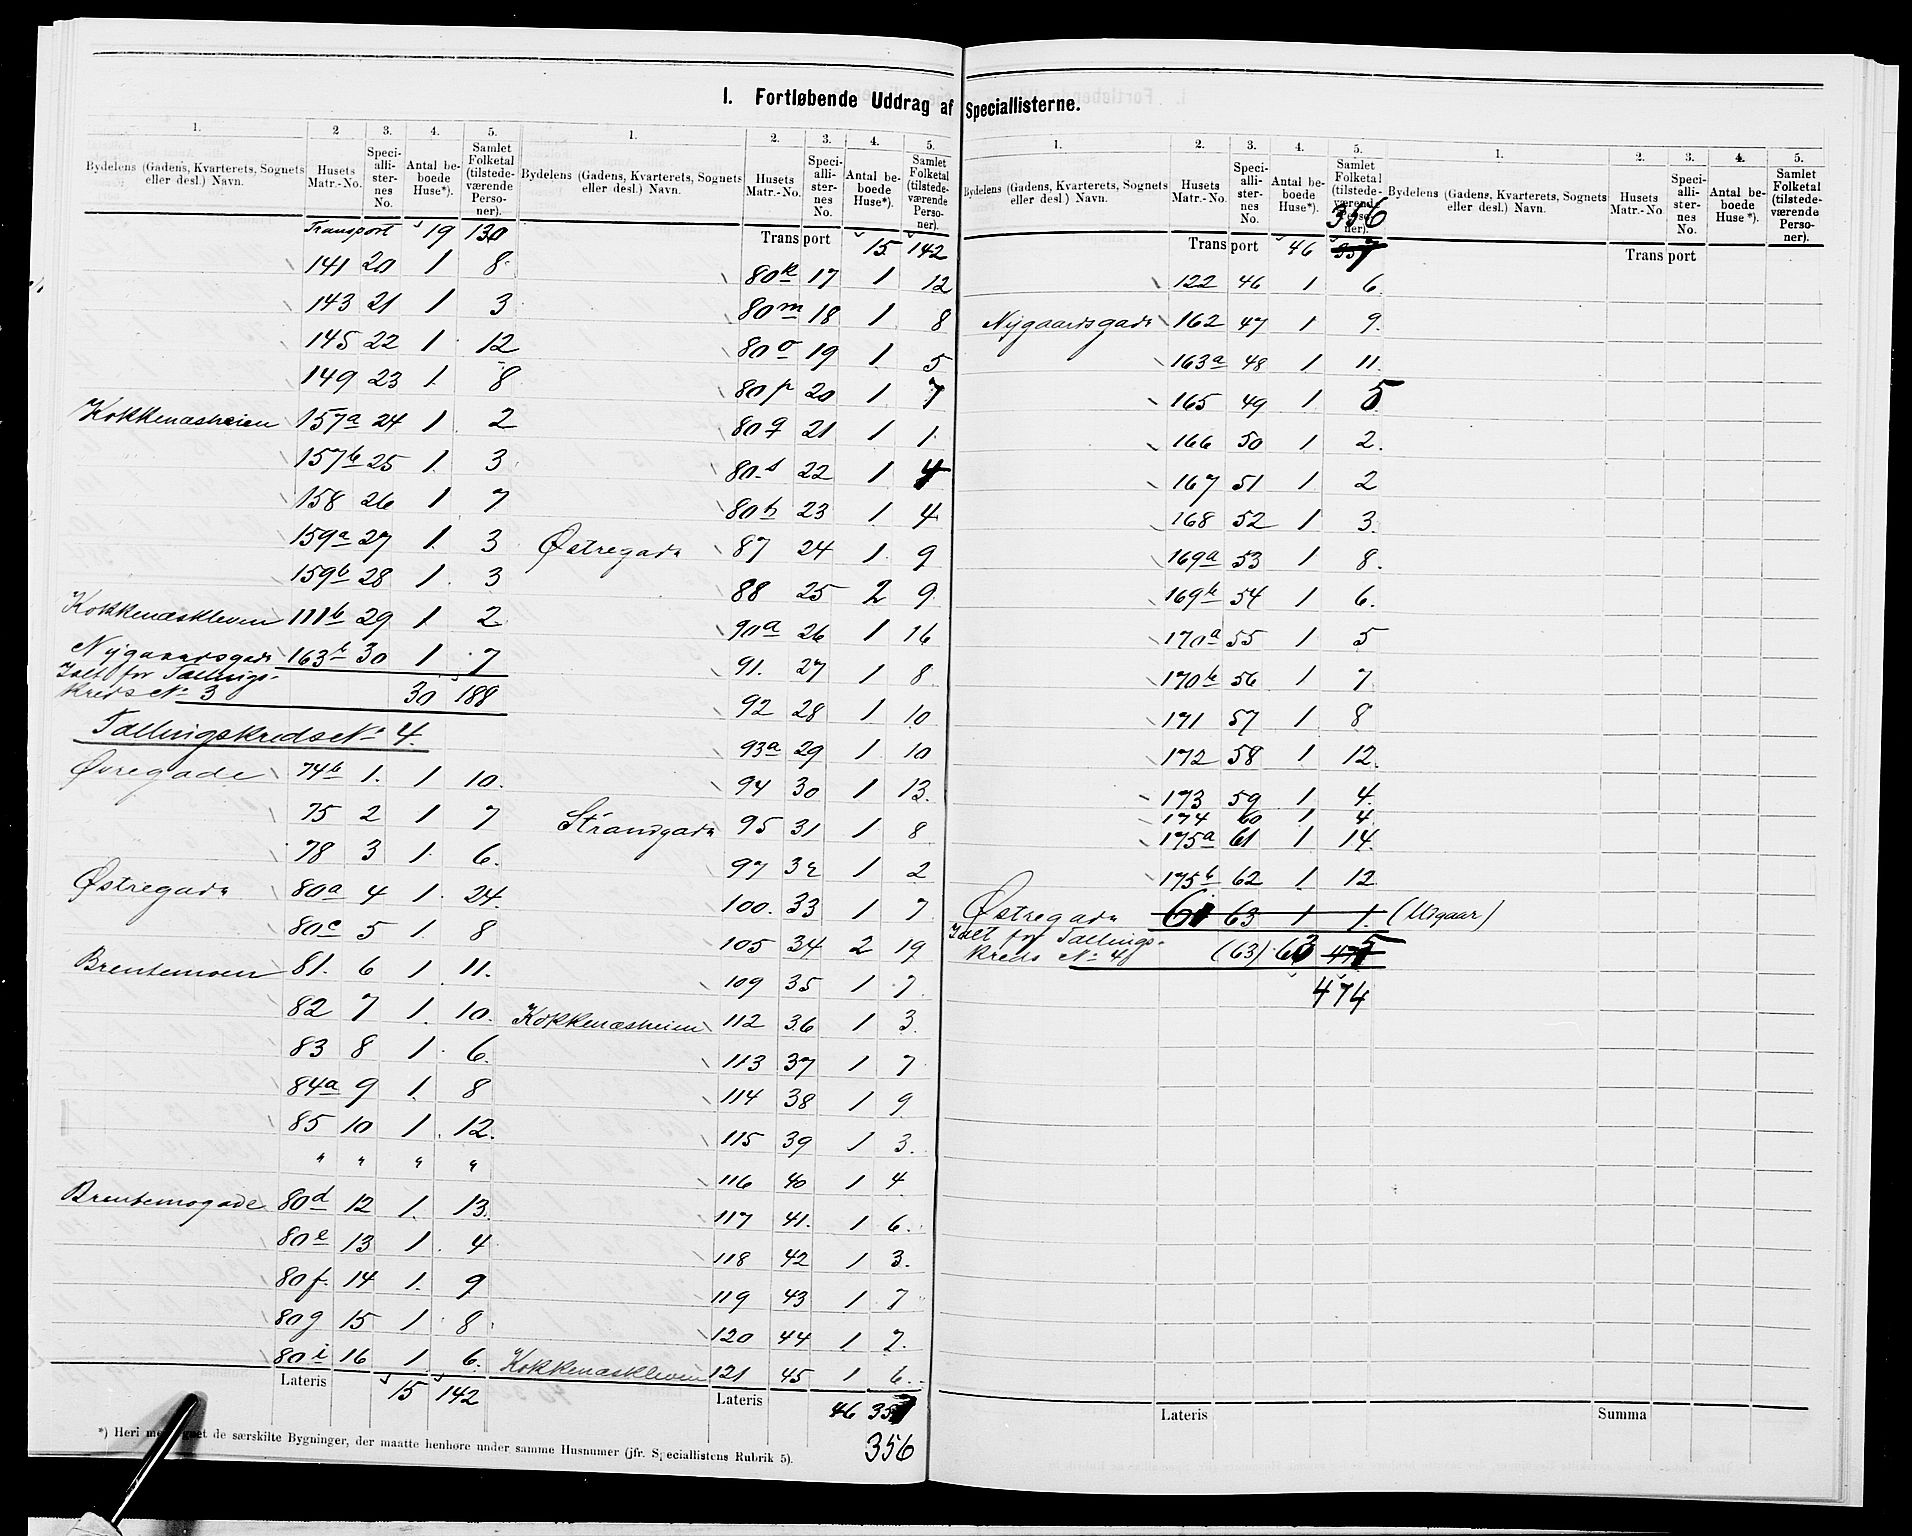 I. Fortløbende Uddrag af Speciallisterne.
1. 2 3. 4. 5.
Bydelens (Gadens, Kvarterets, Sognets eller desl.) Navn. Husets Matr.-No. Speciallisternes No. Antal beboede Huse*). Samlet Folketal (tilstedeværende Personer).
Transport 19 130
141 20 1 8
143 21 1 3
145 22 1 12
149 23 1 8
Kokkenæsheien 157a 24 1 2
157b 25 1 3
158 26 1 7
159a 27 1 3
159b 28 1 3
Kokkenæskleven 111b 29 1 2
Nygaardsgade 163b 30 1 7
Ialt for Tællings-
kreds No 3 30 188
Tællingskreds No 4.
Øvregade 74b 1. 1 10.
75 2 1 7
78 3 1. 6.
Østregade 80a 4 1. 24.
80c 5 1. 8
Brentemoen 81. 6 1 11.
82 7 1. 10.
83 8 1. 6.
84a 9 1. 8
85 10 1. 12.
" " " "
Brentemogade 80d 12 1. 13.
80e 13 1. 4
80f. 14 1. 9
80g 15 1 8
80i 16 1 6.
Lateris 15 142
1. 2. 3. 4. 5.
Bydelens (Gadens, Kvarterets, Sognets eller desl.) Navn. Husets Matr.-No. Speciallisternes No. Antal beboede Huse*). Samlet Folketal (tilstedeværende Personer).
Transport 15 142
80k 17 1 12
80m 18 1 8
80o 19 1 5
80p 20 1 7
80q 21 1 1.
80s 22 1 4
80h 23 1 4
Østregade 87 24 1. 9
88 25 2 9
90a 26 1 16
91. 27 1 8
92 28 1 10
93a 29 1 10
94 30 1 13.
Strandgade 95 31 1 8
97 32 1 2
100. 33 1 7
105 34 2 19
109 35 1 7
Kokkenæsheien 112 36 1 3
113 37 1 7
114 38 1 9
115 39 1 3.
116 40 1 4
117 41. 1 6.
118 42 1 3.
119 43 1 7
120 44 1 7.
Kokkenæskleven 121 45 1 6.
Lateris 46 357
356
*) Heri medregnet de særskilte Bygninger, der maatte henhøre under samme Husnumer (jfr. Speciallistens Rubrik 5).
1. 2. 3. 4. 5.
Bydelens (Gadens, Kvarterets, Sognets eller desl.) Navn. Husets Matr.-No. Speciallisternes No. Antal beboede Huse*). Samlet Folketal (tilstedeværende Personer).
356
Transport 46 357
122 46 1 6.
Nygaardsgade 162 47 1 9.
163a 48 1 11.
165 49 1 5
166 50 1 2.
167 51 1 2
168 52 1 3.
169a 53 1 8.
169b 54 1 6.
170a 55 1 5
170b 56 1 7
171 57 1 8
172 58 1 12.
173 59 1 4.
174 60 1 4.
175a 61 1 14.
175b 62 1 12
Østregade 61 63 1 1. (Udgaar)
Ialt for Tællings-
kreds No 4 (63) 63 475
474
Lateris
1. 2. 3. 4. 5.
Bydelens (Gadens, Kvarterets, Sognets eller desl.) Navn. Husets Matr.-No. Speciallisternes No. Antal beboede Huse*). Samlet Folketal (tilstedeværende Personer).
Transport
Summa